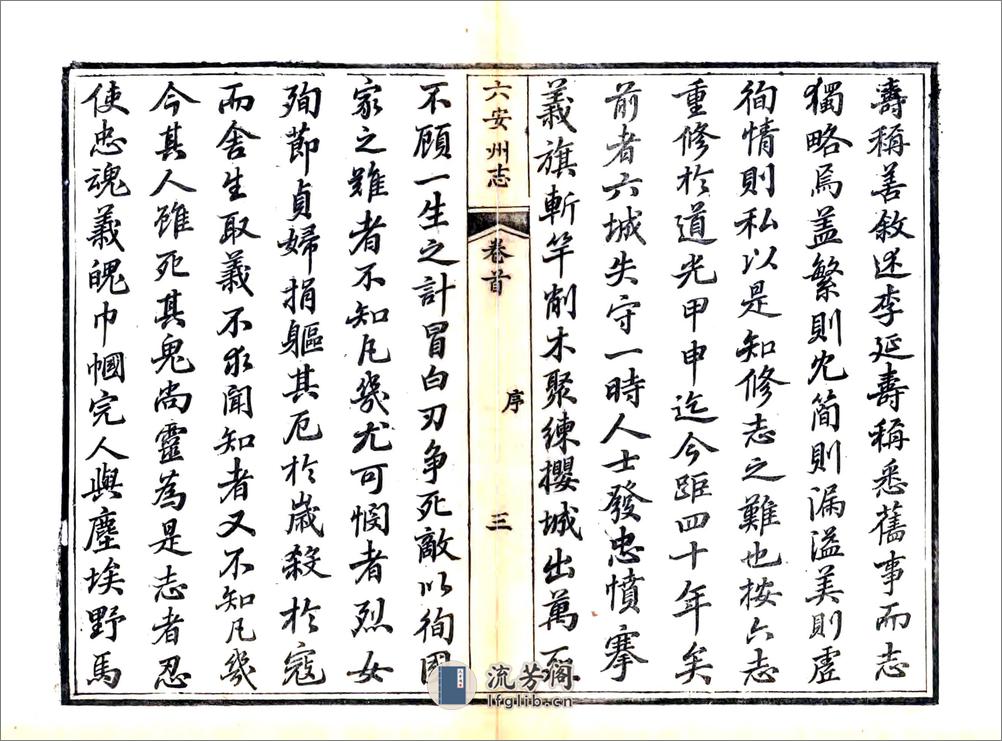 壽稱善敘述李延壽稱悉舊事而志
獨略焉盖繁則宂簡則漏溢美則虛
徇情則私以是知修志之難也按六志
重修於道光甲申迄今距四十年矣
前者六城失守一時人士發忠憤搴
義旗斬竿削木聚練攖城出萬死
六安州志
卷首
序
三
不顧一生之計冒白刃争死敵以徇國
家之難者不知凡幾尤可憫者烈女
殉節貞婦捐軀其厄於歲殺於寇
而舍生取義不求聞知者又不知凡幾
今其人雖死其鬼尚靈為是志者忍
使忠魂義魄巾幗完人與塵埃野馬
流芳阁
lfglib.cn